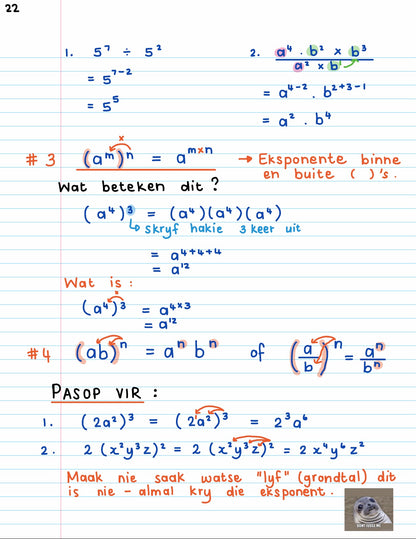 22
1. 5⁷ ÷ 5²
= 5⁷⁻²
= 5⁵
2. a⁴ . b² × b³ / a² × b¹
= a⁴⁻² . b²⁺³⁻¹
= a² . b⁴
#3 (aᵐ)ⁿ = aᵐˣⁿ → Eksponente binne
en buite ( )'s.
x
Wat beteken dit?
(a⁴)³ = (a⁴)(a⁴)(a⁴)
↳ skryf hakie 3 keer uit
= a⁴⁺⁴⁺⁴
= a¹²
Wat is:
(a⁴)³ = a⁴ˣ³
= a¹²
#4 (ab)ⁿ = aⁿ bⁿ of (a/b)ⁿ = aⁿ/bⁿ
PASOP VIR:
1. (2a²)³ = (2a²)³ = 2³a⁶
2. 2(x²y³z)² = 2(x²y³z)² = 2x⁴y⁶z²
Maak nie saak watse "lyf" (grondtal) dit
is nie - almal kry die eksponent.